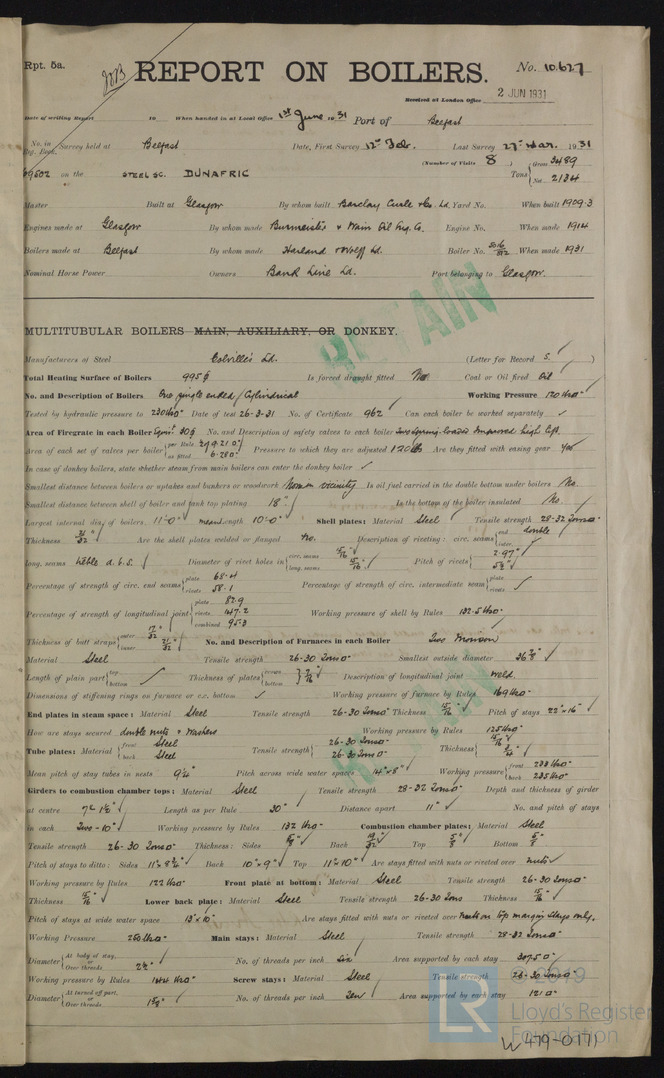 Rpt. 5a.
REPORT ON BOILERS.
No. 10.627
Received at London Office
2 JUN 1931
Date of writing Report 19 When handed in at Local Office 1st June 1931 Port of Belfast
No. in Reg. Book. Survey held at Belfast Date, First Survey 12th Feb. Last Survey 27th Mar. 1931
(Number of Visits 8 )
69502 on the STEEL SC. DUNAFRIC Tons { Gross 3489
Net 2134
Master Built at Glasgow By whom built Barclay Curle & Co. Ld. Yard No. When built 1909.3
Engines made at Glasgow By whom made Burmeister & Wain Oil Eng. Co. Engine No. When made 1914
Boilers made at Belfast By whom made Harland & Wolff Ld. Boiler No. When made 1931
Nominal Horse Power Owners Bank Line Ld. Port belonging to Glasgow.
MULTITUBULAR BOILERS MAIN, AUXILIARY, OR DONKEY.
Manufacturers of Steel Colville's Ld. (Letter for Record S. )
Total Heating Surface of Boilers 995 Is forced draught fitted No Coal or Oil fired Oil
No. and Description of Boilers One single ended / Cylindrical Working Pressure 120 lbs
Tested by hydraulic pressure to 230 lbs Date of test 26-3-31 No. of Certificate 962 Can each boiler be worked separately ✓
Area of Firegrate in each Boiler No. and Description of safety valves to each boiler Two Spring-loaded Improved high lift.
Area of each set of valves per boiler { per Rule
as fitted 6.28 Pressure to which they are adjusted 120 lbs Are they fitted with easing gear Yes
In case of donkey boilers, state whether steam from main boilers can enter the donkey boiler ✓
Smallest distance between boilers or uptakes and bunkers or woodwork None in vicinity Is oil fuel carried in the double bottom under boilers No.
Smallest distance between shell of boiler and tank top plating 18" Is the bottom of the boiler insulated No.
Largest internal dia. of boilers 11'-0" mean Length 10'-0" Shell plates: Material Steel Tensile strength 28-32 Tons
Thickness 21/32" Are the shell plates welded or flanged No. Description of riveting: circ. seams { end double
inter.
long. seams treble d.b.s. Diameter of rivet holes in { circ. seams 15/16"
long. seams 15/16" Pitch of rivets { 2.97"
Percentage of strength of circ. end seams { plate 68.4
rivets 58.1 Percentage of strength of circ. intermediate seam { plate
rivets
Percentage of strength of longitudinal joint { plate 82.9
rivets
combined 95.3 Working pressure of shell by Rules 132.5 lbs
Thickness of butt straps { outer
inner 21/32" No. and Description of Furnaces in each Boiler Two Morison
Material Steel Tensile strength 26-30 Tons Smallest outside diameter 36 7/8"
Length of plain part { top
bottom Thickness of plates { crown
bottom } 7/16" Description of longitudinal joint Weld.
Dimensions of stiffening rings on furnace or c.c. bottom ✓ Working pressure of furnace by Rules 169 lbs
End plates in steam space: Material Steel Tensile strength 26-30 Tons Thickness 15/16" Pitch of stays 22" x 16"
How are stays secured double nuts & washers Working pressure by Rules 125 lbs
Tube plates: Material { front Steel
back Steel Tensile strength { 26-30 Tons
26-30 Tons Thickness { 15/16"
3/4"
Mean pitch of stay tubes in nests 9 1/4" Pitch across wide water spaces 14" x 8" Working pressure { front 233 lbs
back 235 lbs
Girders to combustion chamber tops: Material Steel Tensile strength 28-32 Tons Depth and thickness of girder
at centre Length as per Rule 30" Distance apart 11" No. and pitch of stays
in each Two - 10" Working pressure by Rules 132 lbs Combustion chamber plates: Material Steel
Tensile strength 26-30 Tons Thickness: Sides 5/8" Back Top 5/8" Bottom 5/8"
Pitch of stays to ditto: Sides 11" x 8 3/4" Back 10" x 9" Top 11" x 10" Are stays fitted with nuts or riveted over nuts
Working pressure by Rules 122 lbs Front plate at bottom: Material Steel Tensile strength 26-30 Tons
Thickness 15/16" Lower back plate: Material Steel Tensile strength 26-30 Tons Thickness 15/16"
Pitch of stays at wide water space 13" x 10" Are stays fitted with nuts or riveted over Nuts on top margin stays only.
Working Pressure 250 lbs Main stays: Material Steel Tensile strength 28-32 Tons
Diameter { At body of stay,
or
Over threads 2 1/2" No. of threads per inch Six Area supported by each stay 307.5
Working pressure by Rules 144 lbs Screw stays: Material Steel Tensile strength 26-30 Tons
Diameter { At turned off part,
or
Over threads 1 5/8" No. of threads per inch Ten Area supported by each stay 121
BRITAIN
© 2019
LR
Lloyd's Register
Foundation
W479-0171